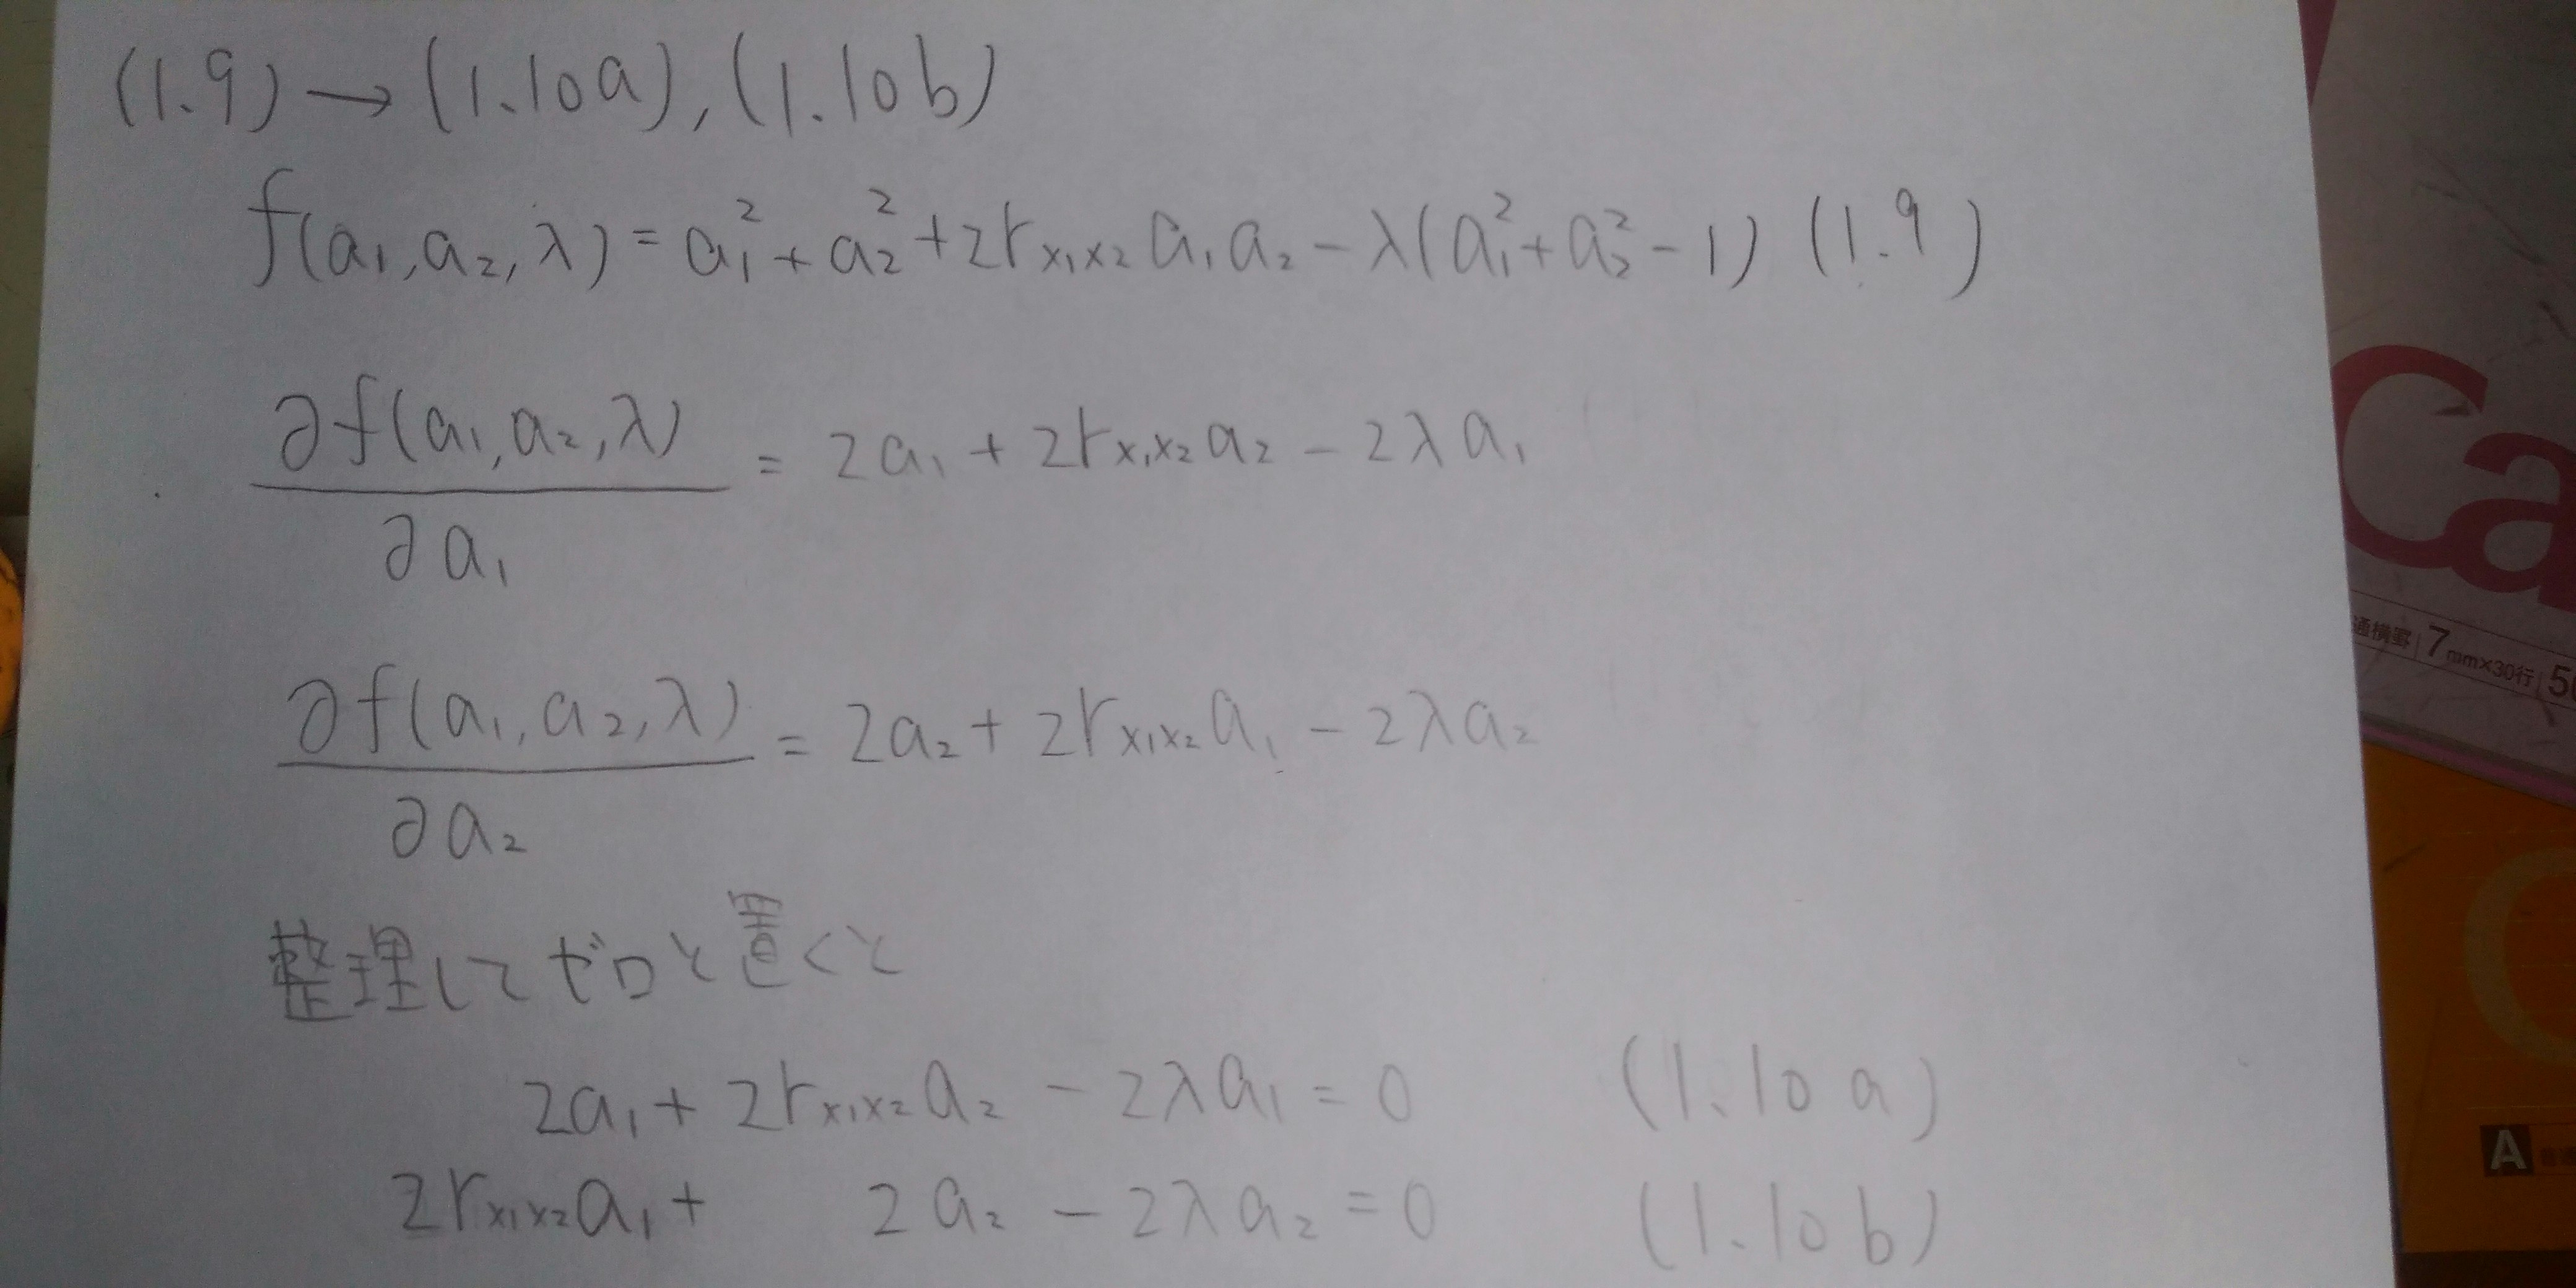 (1.9) → (1.10a), (1.10b)
f(a₁, a₂, λ) = a₁² + a₂² + 2rₓ₁ₓ₂ a₁ a₂ − λ(a₁² + a₂² − 1) (1.9)
∂f(a₁, a₂, λ) / ∂a₁ = 2a₁ + 2rₓ₁ₓ₂ a₂ − 2λa₁
∂f(a₁, a₂, λ) / ∂a₂ = 2a₂ + 2rₓ₁ₓ₂ a₁ − 2λa₂
整理してゼロと置くと
2a₁ + 2rₓ₁ₓ₂ a₂ − 2λa₁ = 0 (1.10a)
2rₓ₁ₓ₂ a₁ + 2a₂ − 2λa₂ = 0 (1.10b)
Ca
通横罫 7mm×30行
A